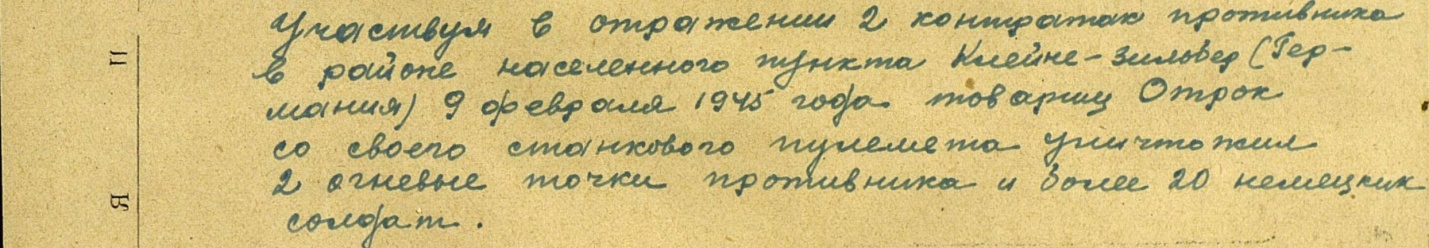 Участвуя в отражении 2 контратак противника
в районе населенного пункта Клейне-Зильбер (Гер-
мания) 9 февраля 1945 года товарищ Отрок
со своего станкового пулемета уничтожил
2 огневые точки противника и более 20 немецких
солдат.